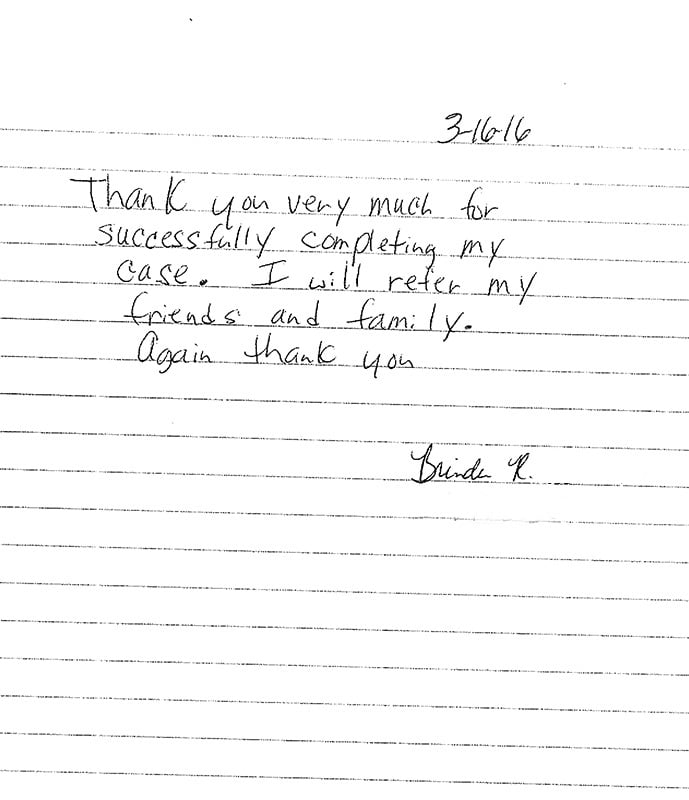 3-16-16
Thank you very much for
successfully completing my
case. I will refer my
friends and family.
Again thank you
Brinda R.